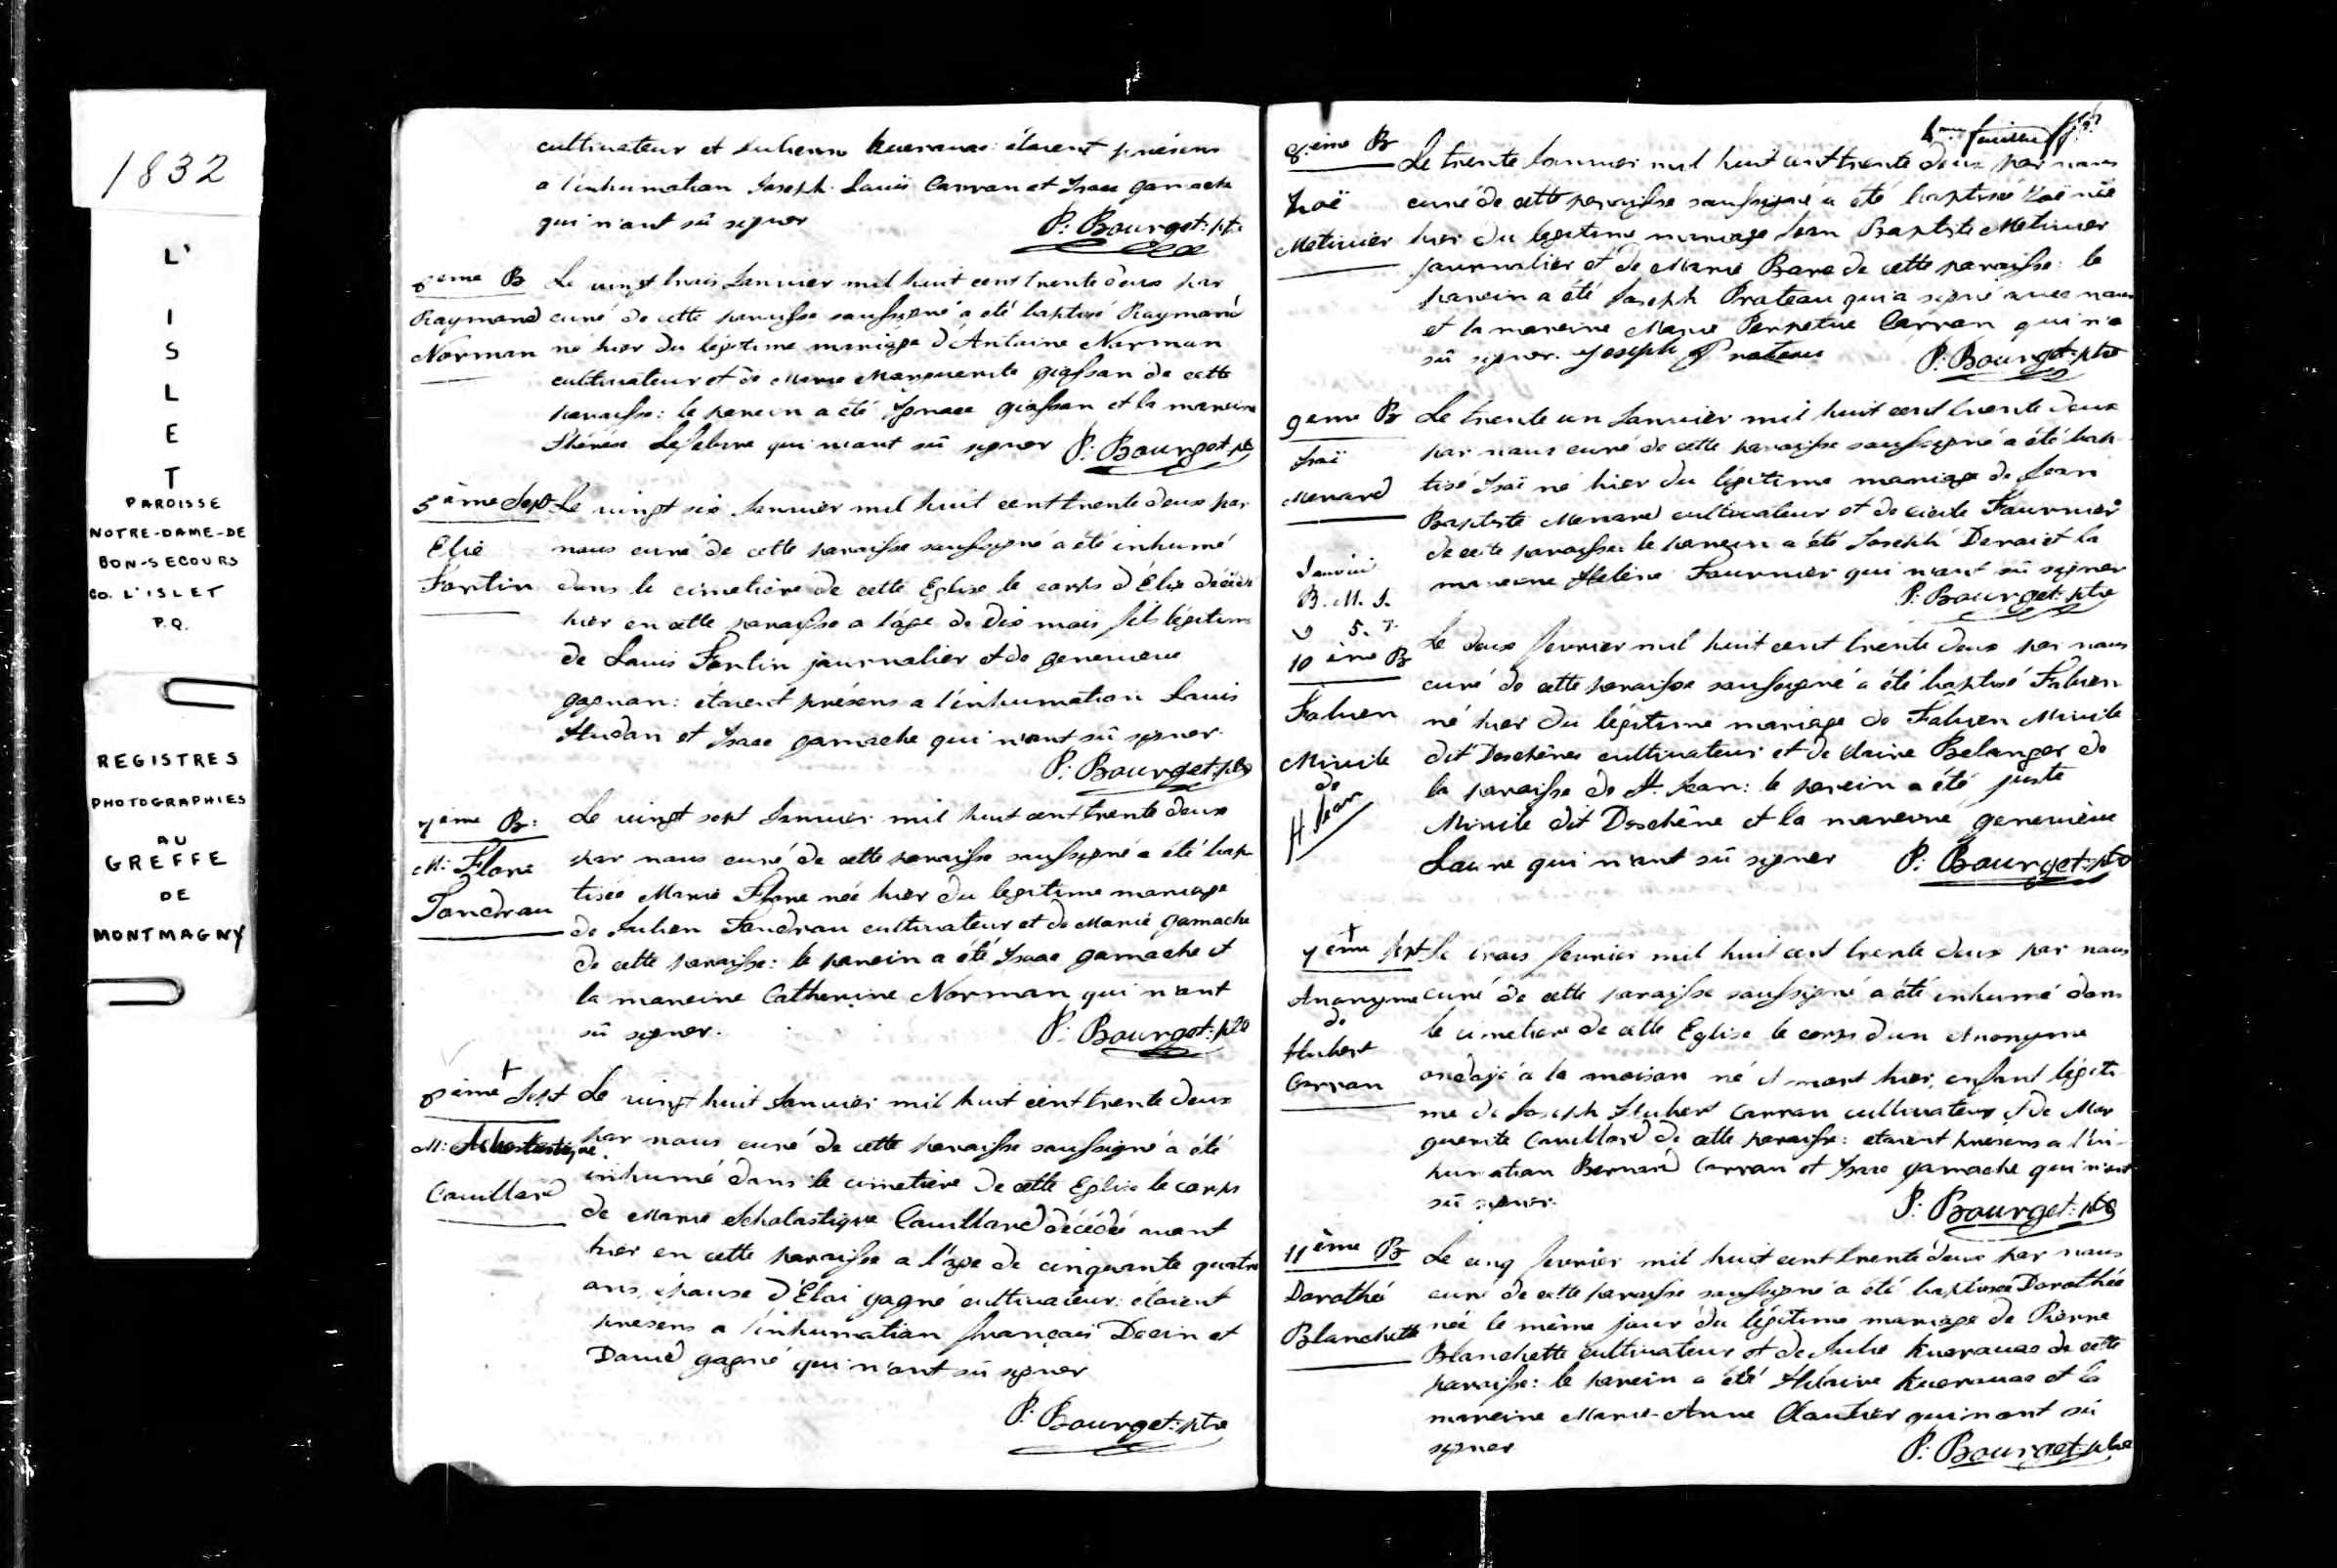 1832
L'
I
S
L
E
T
PAROISSE
NOTRE-DAME-DE
BON-SECOURS
CO. L'ISLET
P.Q.
REGISTRES
PHOTOGRAPHIES
AU
GREFFE
DE
MONTMAGNY
cultivateur et Julienne Kuerouac: étaient présens
a l'inhumation Joseph Louis Carran et Isaac gamache
qui n'ont sû signer P: Bourget: ptre
6eme B Le vingt trois Janvier mil huit cent trente deux par
Raymond curé de cette paroisse soussigné a été baptisé Raymond
Norman né hier du légitime mariage d'Antoine Norman
cultivateur et de Marie Marguerite giasson de cette
paroisse: le parein a été Ignace giasson et la mareine
Thérèse Lefebvre qui n'ont sû signer P: Bourget ptre
5ème Sep Le vingt six Janvier mil huit cent trente deux par
Elie nous curé de cette paroisse soussigné a été inhumé
Fortin dans le cimetière de cette Eglise le corps d'Élie décédé
hier en cette paroisse a l'âge de dix mois fils légitime
de Louis Fortin journalier et de genevieve
gagnon: étaient présens a l'inhumation Louis
Hudon et Isaac gamache qui n'ont sû signer.
P: Bourget: ptre
7ème B: Le vingt sept Janvier mil huit cent trente deux
M: Flore par nous curé de cette paroisse soussigné a été bap
Tondrau tisée Marie Flore née hier du legitime mariage
de Julien Tondrau cultivateur et de Marie gamache
de cette paroisse: le parein a été Isaac gamache et
la mareine Catherine Norman qui n'ont
sû signer. P: Bourget: ptre
+
6ème Sept Le vingt huit Janvier mil huit cent trente deux
M: Scholastique par nous curé de cette paroisse soussigné a été
Couillard inhumé dans le cimetière de cette Eglise le corps
de Marie Scholastique Couillard décédé avant
hier en cette paroisse a l'age de cinquante quatre
ans épouse d'Éloi gagné cultivateur: étaient
présens a l'inhumation françois Docin et
David gagné qui n'ont sû signer
P: Bourget: ptre
4me feuillet
8ème B Le trente Janvier mil huit cent trente deux par nous
Zoë curé de cette paroisse soussigné a été baptisé Zoë née
Metivier hier du legitime mariage Jean Baptiste Metivier
journalier et de Marie Bare de cette paroisse: le
parein a été Joseph Prateau qui a signé avec nous
et la mareine Marie Perpetue Carran qui n'a
sû signer. Joseph Prateau P: Bourget: ptre
9eme B Le trente un Janvier mil huit cent trente deux
Isaï par nous curé de cette paroisse soussigné a été bap
Menard tisé Isaï né hier du légitime mariage de Jean
Baptiste Menard cultivateur et de Cécile Fournier
de cette paroisse le parein a été Joseph Deroi et la
Janvier mareine Helène Fournier qui n'ont sû signer
B. M. S. P: Bourget: ptre
9 5. 7.
10ème B Le deux fevrier mil huit cent trente deux par nous
curé de cette paroisse soussigné a été baptisé Fabien
Fabien né hier du légitime mariage de Fabien Miville
Miville dit Deschênes cultivateur et de Claire Belanger de
de la paroisse de St. Jean: le parein a été juste
St. Jean Miville dit Deschêne et la mareine genevieve
Laune qui n'ont sû signer P: Bourget: ptre
+
7ème Sept Le trois fevrier mil huit cent trente deux par nous
Anonyme curé de cette paroisse soussigné a été inhumé dans
de le cimetiere de cette Eglise le corps d'un Anonyme
Hubert ondoyé a la maison né et mort hier, enfant légiti
Carran me de Joseph Hubert Carran cultivateur et de Mar
guerite Couillard de cette paroisse: etaient presens a l'in-
humation Bernard Carran et Isaac gamache qui n'ont
sû signer. P: Bourget: ptre
11ème B Le cinq fevrier mil huit cent trente deux par nous
Dorothé curé de cette paroisse soussigné a été baptisée Dorothée
Blanchette née le même jour du légitime mariage de Pierre
Blanchette cultivateur et de Julie Kuerouac de cette
paroisse: le parein a été Hilaire Kuerouac et la
mareine Marie-Anne Cloutier qui n'ont sû
signer P: Bourget: ptre